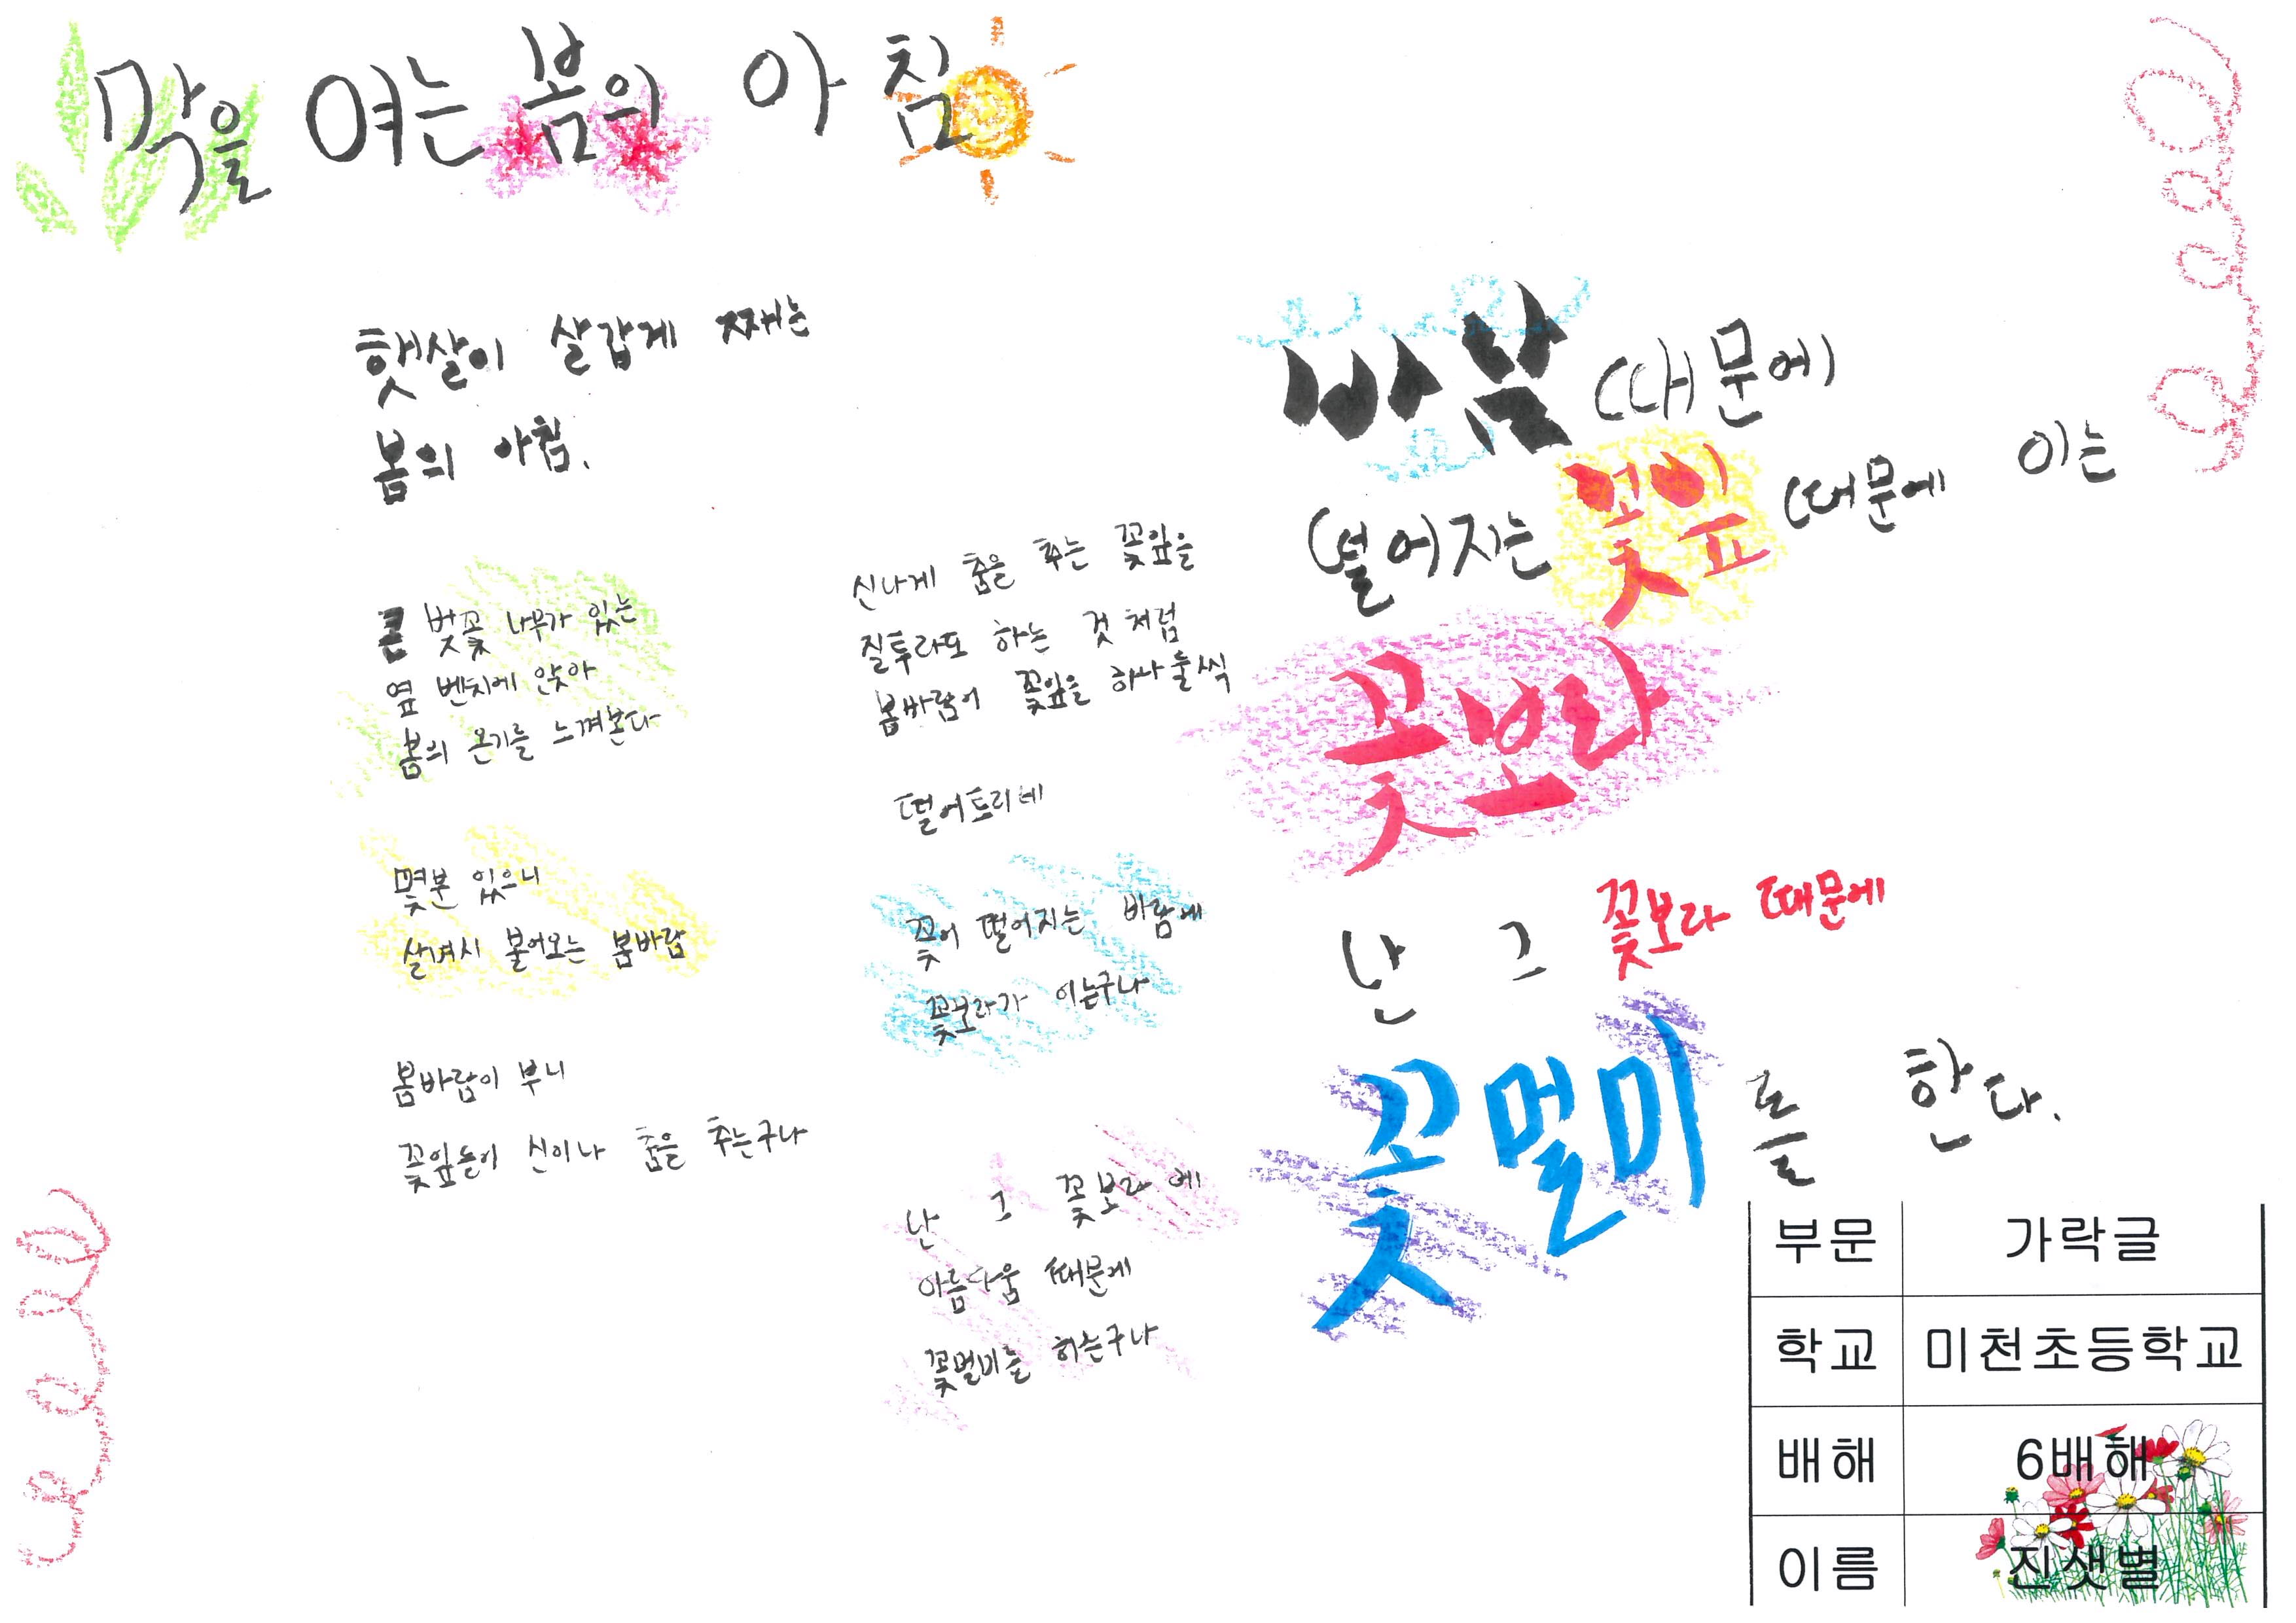 막을 여는 봄의 아침
햇살이 살갑게 째는
봄의 아침.
큰 벚꽃 나무가 있는
옆 벤치에 앉아
봄의 온기를 느껴본다
몇분 있으니
살겨시 불어오는 봄바람
봄바람이 부니
꽃잎들이 신이나 춤을 추는구나
신나게 춤을 추는 꽃잎을
질투라도 하는 것 처럼
봄바람이 꽃잎을 하나 둘씩
떨어트리네
꽃이 떨어지는 바람에
꽃보라가 이는구나
난 그 꽃보라에
아름다움 때문에
꽃멀미를 하는구나
봄 때문에
떨어지는 꽃잎 때문에 이는
꽃보라
난 그 꽃보라 때문에
꽃멀미를 한다.
부문 가락글
학교 미천초등학교
배해 6배해
이름 진샛별